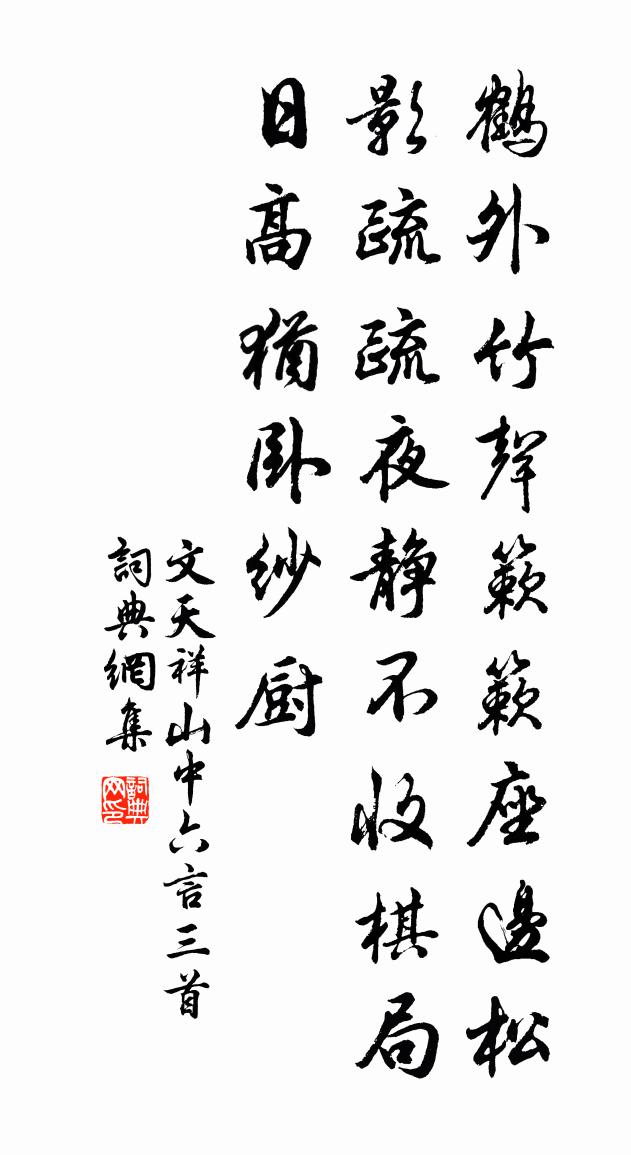 鶴外竹聲簌簌座邊松
影疏疏夜靜不收棋局
日高猶卧紗厨
文天祥山中六言三首
詞典網集
詞典网印